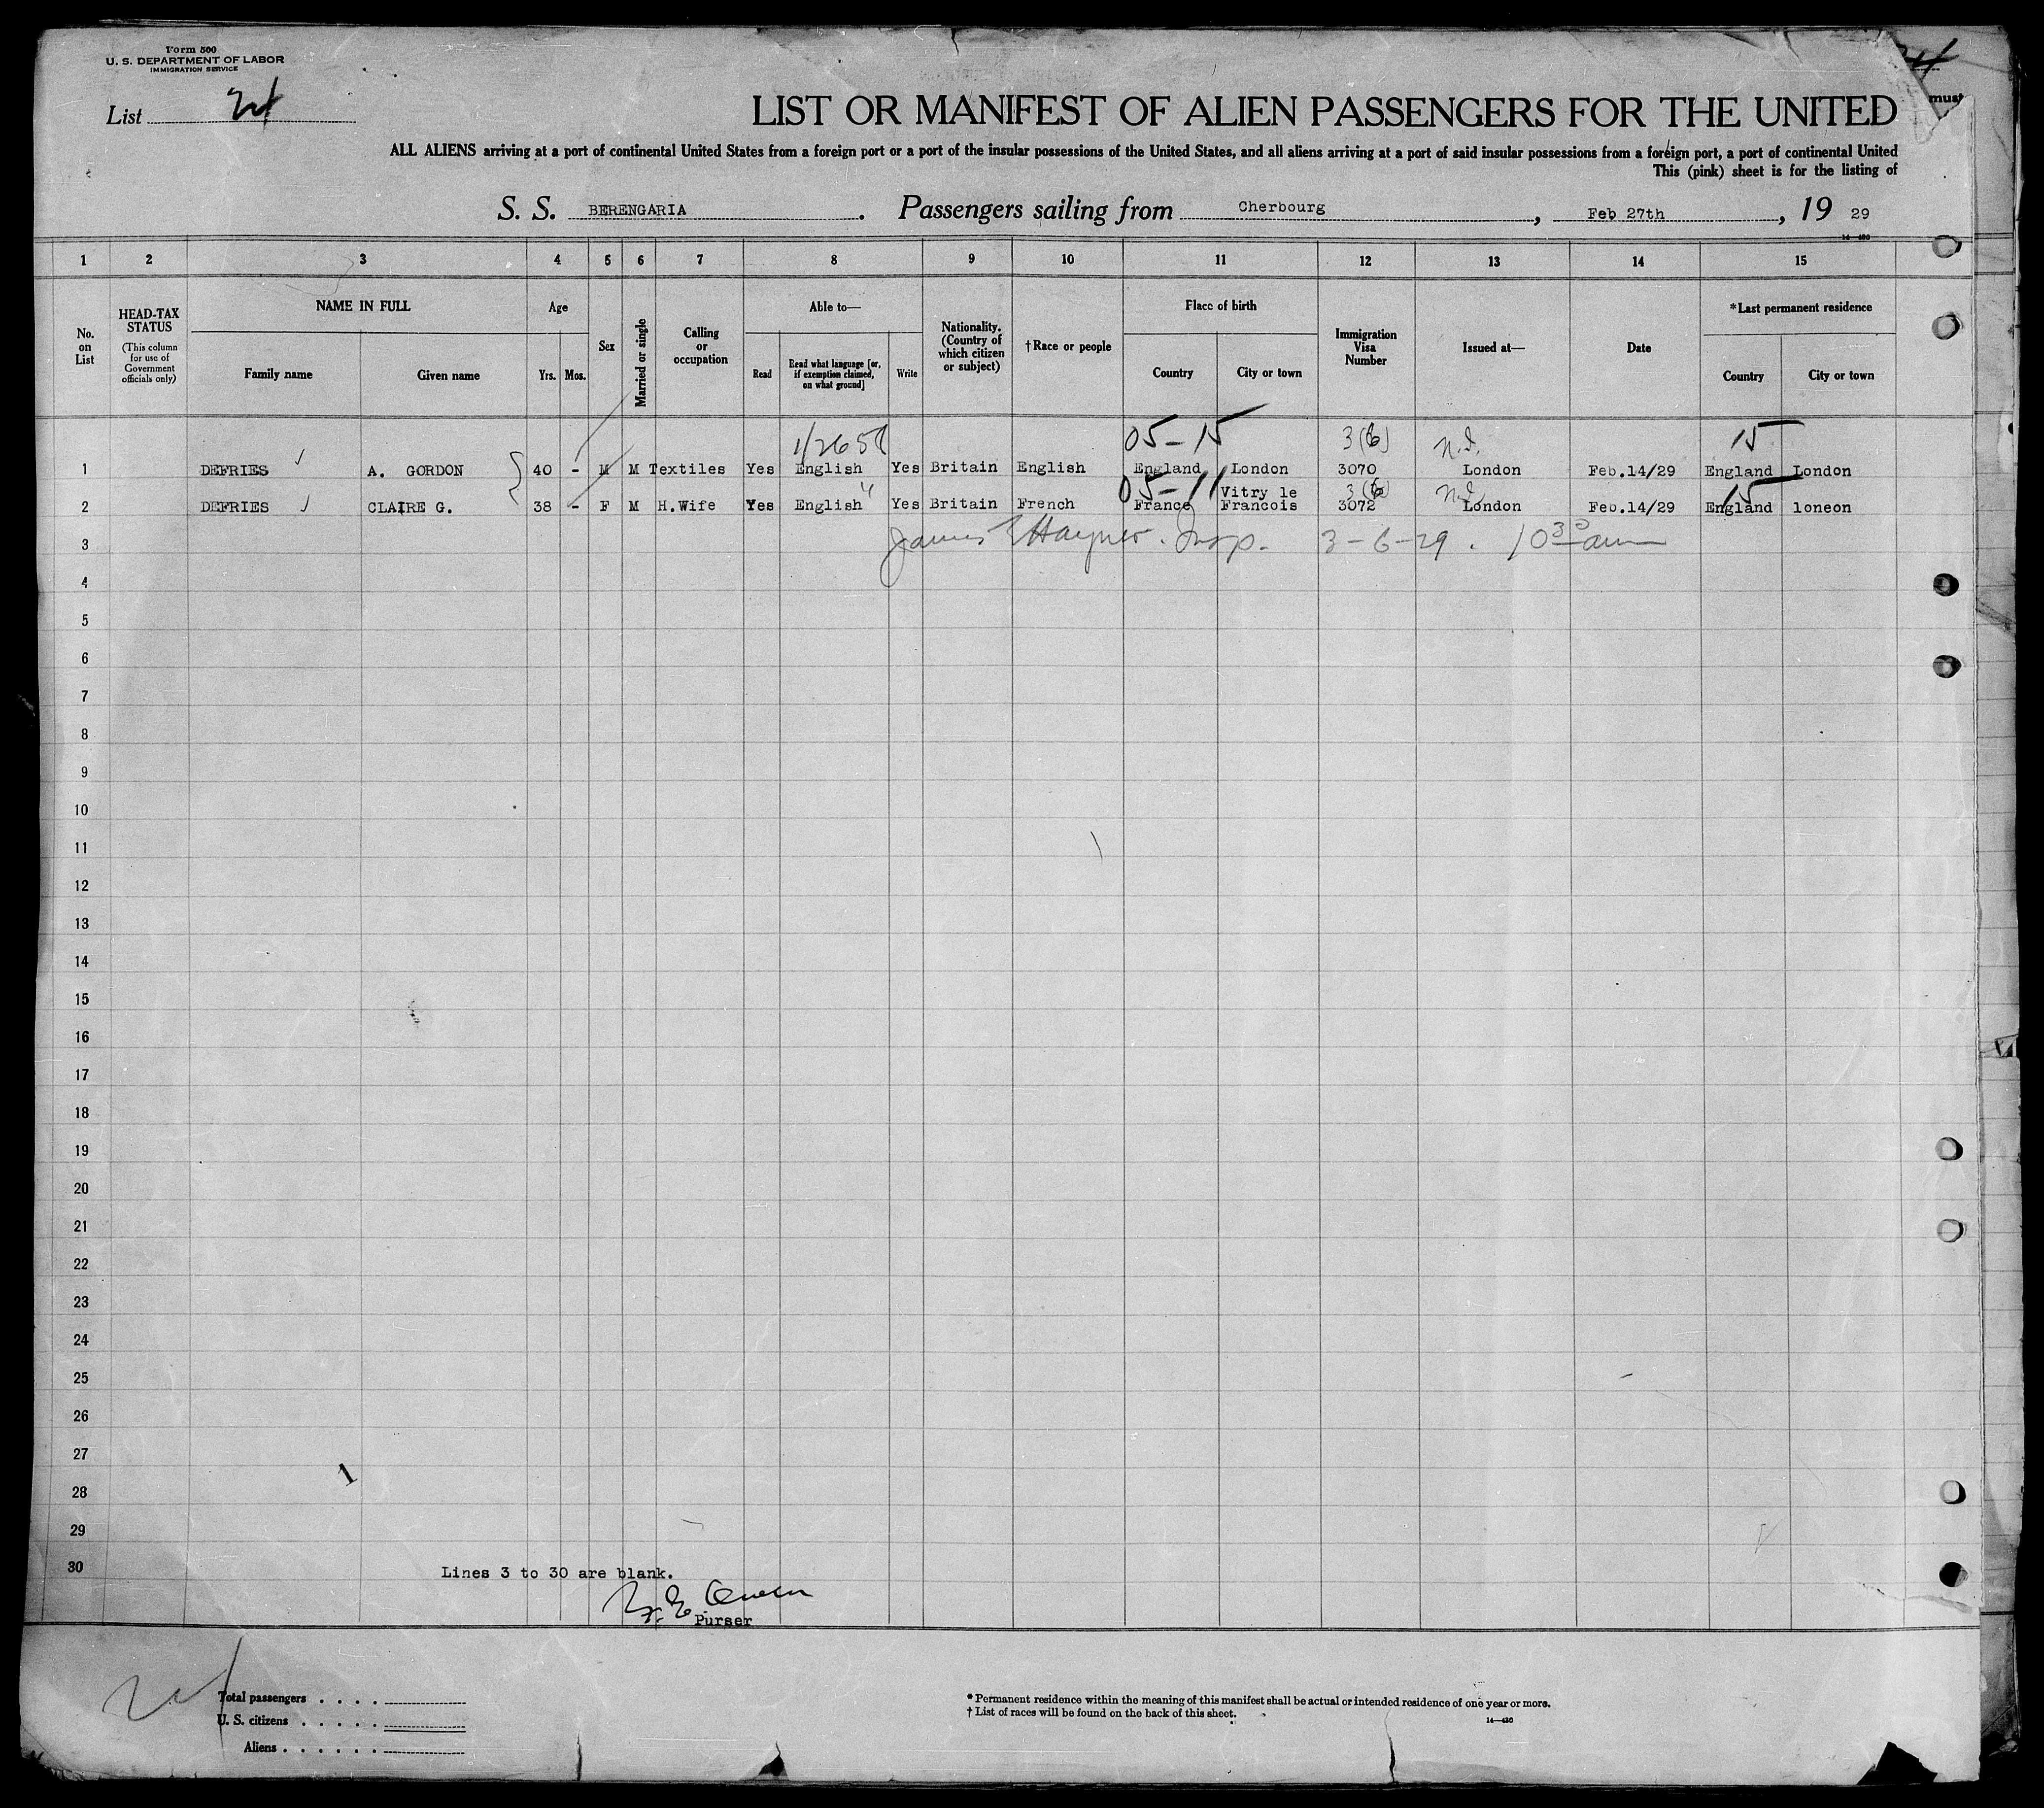 Form 500
U. S. DEPARTMENT OF LABOR
IMMIGRATION SERVICE
List
LIST OR MANIFEST OF ALIEN PASSENGERS FOR THE UNITED
must
ALL ALIENS arriving at a port of continental United States from a foreign port or a port of the insular possessions of the United States, and all aliens arriving at a port of said insular possessions from a foreign port, a port of continental United
This (pink) sheet is for the listing of
S. S. BERENGARIA . Passengers sailing from Cherbourg , Feb 27th , 19 29
1 2 3 4 5 6 7 8 9 10 11 12 13 14 15
No. on List
HEAD-TAX STATUS
(This column for use of Government officials only)
NAME IN FULL
Family name Given name
Age
Yrs. Mos.
Sex
Married or single
Calling or occupation
Able to—
Read
Read what language [or, if exemption claimed, on what ground]
Write
Nationality. (Country of which citizen or subject)
†Race or people
Place of birth
Country City or town
Immigration Visa Number
Issued at—
Date
*Last permanent residence
Country City or town
05-15 3(6) 15
1 DEFRIES A. GORDON 40 - M M Textiles Yes English Yes Britain English England London 3070 London Feb.14/29 England London
05-11 Vitry le 3(6) 15
2 DEFRIES CLAIRE G. 38 - F M H.Wife Yes English " Yes Britain French France Francois 3072 London Feb.14/29 England loneon
3 James Insp. 3-6-29. 10 30 am
4
5
6
7
8
9
10
11
12
13
14
15
16
17
18
19
20
21
22
23
24
25
26
27
1
28
29
30
Lines 3 to 30 are blank.
Purser
Total passengers . . . .
U. S. citizens . . . . .
Aliens . . . . . .
* Permanent residence within the meaning of this manifest shall be actual or intended residence of one year or more.
† List of races will be found on the back of this sheet.
14—430